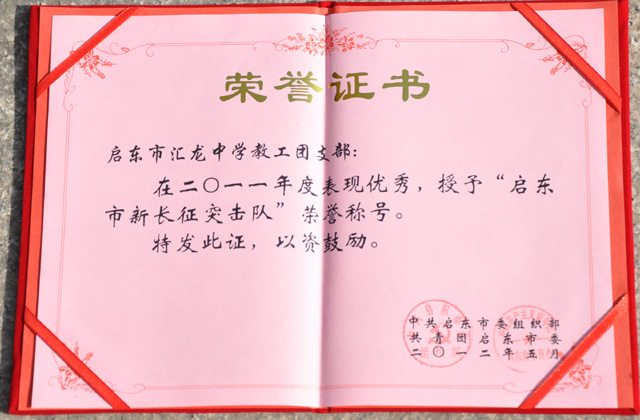 荣誉证书
启东市汇龙中学教工团支部：
在二〇一一年度表现优秀，授予“启东
市新长征突击队”荣誉称号。
特发此证，以资鼓励。
中共启东市委组织部
共青团启东市委
二〇一二年五月